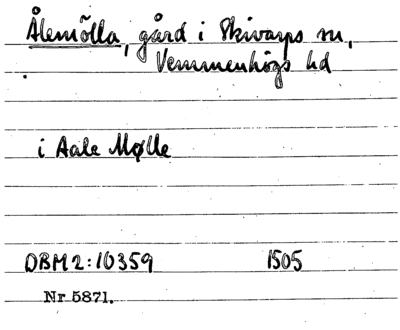 Ålemölla, gård i Skivarps sn,
Vemmenhögs hd
i Aale Mølle
DBM 2:10359 1505
Nr 5871.